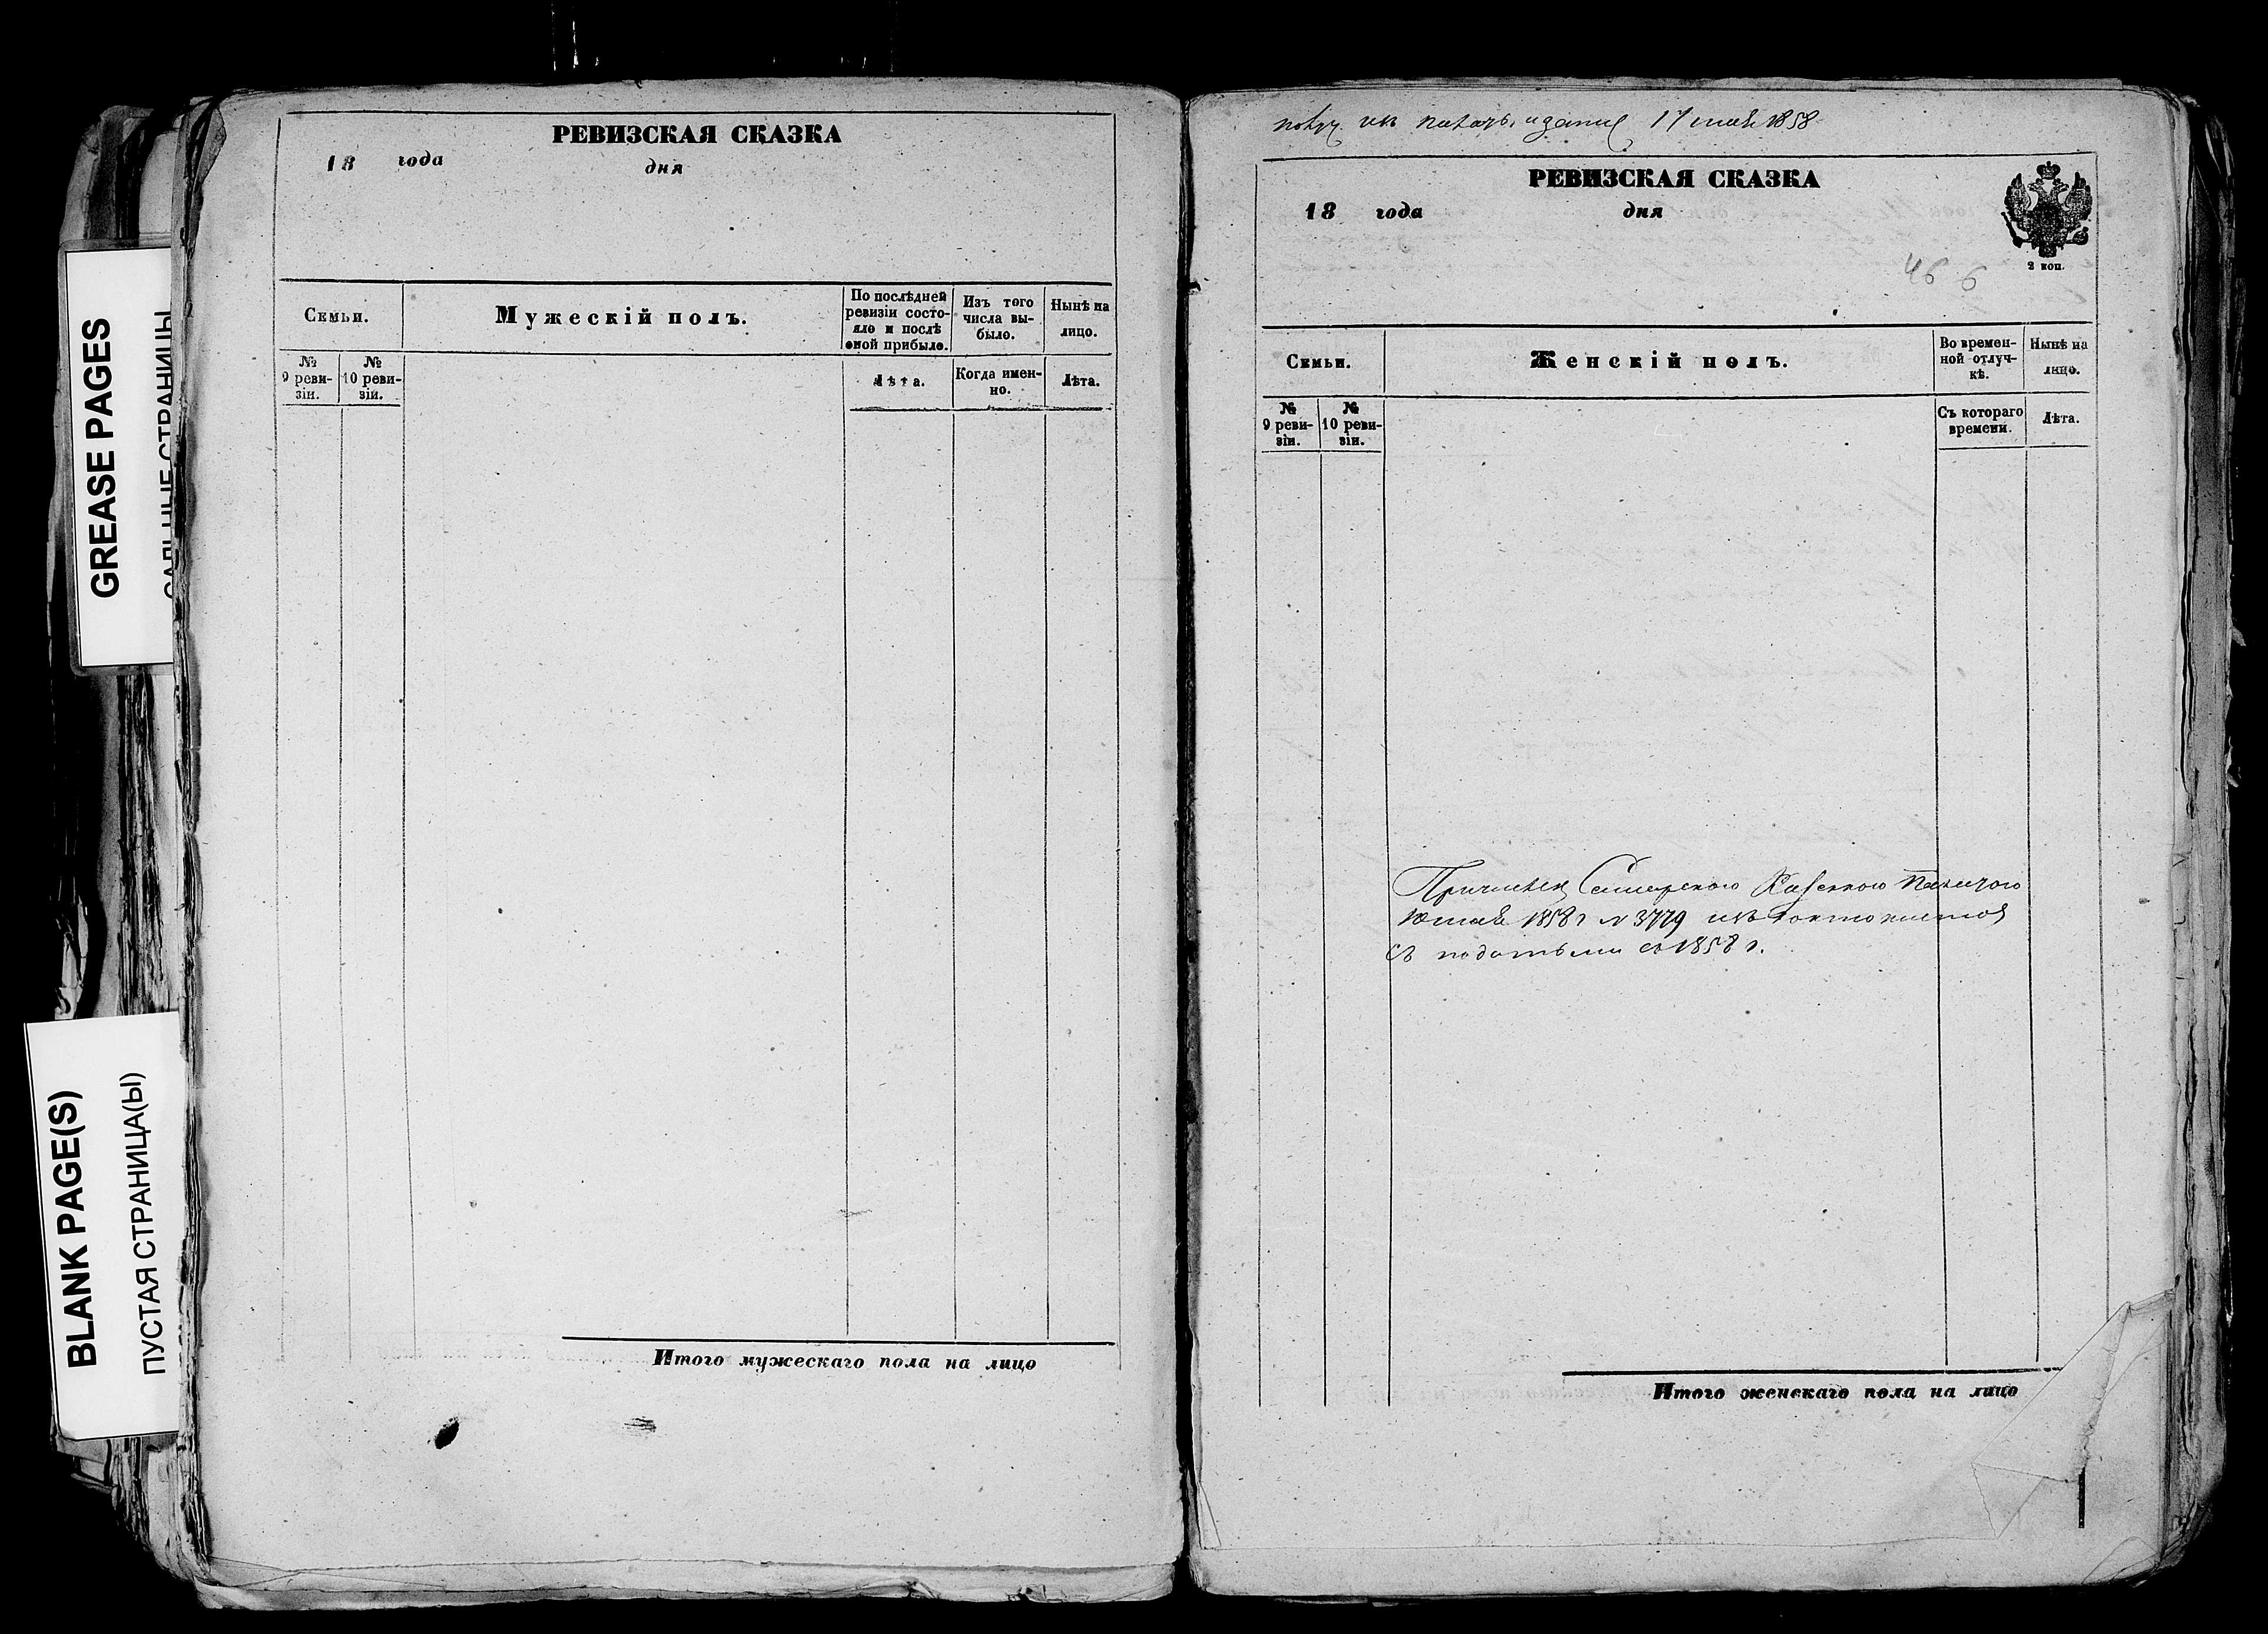 GREASE PAGES
BLANK PAGE(S)
ПУСТАЯ СТРАНИЦА(Ы)
РЕВИЗСКАЯ СКАЗКА
18 года дня
Семьи.
Мужескій полъ.
По послѣдней ревизіи состояло и послѣ оной прибыло.
Изъ того числа выбыло.
Нынѣ на лицо.
№ 9 ревизіи.
№ 10 ревизіи.
Лѣта.
Когда именно.
Лѣта.
Итого мужескаго пола на лицо
17 мая 1858
РЕВИЗСКАЯ СКАЗКА
18 года дня
2 коп.
46 6
Семьи.
Женскій полъ.
Во временной отлучкѣ.
Нынѣ на лицо.
№ 9 ревизіи.
№ 10 ревизіи.
Съ котораго времени.
Лѣта.
1858 г № 3779
съ податьми съ 1858 г.
Итого женскаго пола на лицо